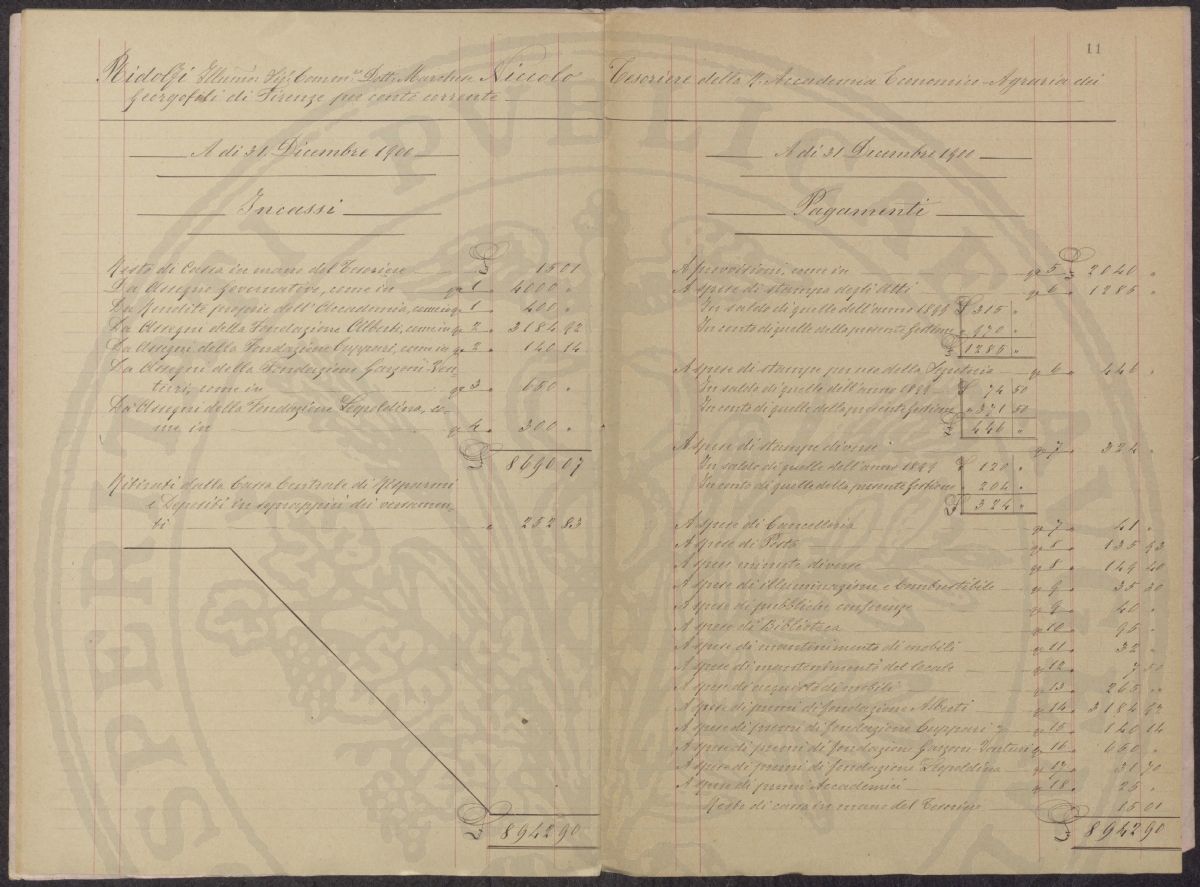 11
Ridolfi Illumo. Sigr. Comm.re Dott. Marchese Niccolo Tesoriere della R. Accademia Economico-Agraria dei
Georgofili di Firenze per conto corrente
A di 31 Dicembre 1900
Incassi
Resto di Cassa in mano del Tesoriere 15 01
Da Assegno Governativo, come in 1 4000 "
Da Rendite proprie dell'Accademia, come in 1 400 "
Da Assegni della Fondazione Alberti, come in 2 3184 92
Da Assegni della Fondazione Cuppari, come in 2 140 14
Da Assegni della Fondazione Garzoni-Ven-
turi, come in 3 650 "
Da Assegni della Fondazione Leopoldina, co-
me in 4 300 "
8690 07
Ritirati dalla Cassa Centrale di Risparmi
e Depositi in soprappiù dei versamen-
ti " 252 83
8942 90
A di 31 Decembre 1900
Pagamenti
A provvisioni, come in 5 2040 "
A spese di stampa degli Atti 6 1285 "
In saldo di quelle dell'anno 1899 £ 315 "
In conto di quelle della presente Gestione " 970 "
£ 1285 "
A spese di stampe per uso della Segreteria 6 446 "
In saldo di quelle dell'anno 1899 £ 74 50
In conto di quelle della presente Gestione " 371 50
£ 446 "
A spese di stampe diverse 7 324 "
In saldo di quelle dell'anno 1899 £ 120 "
In conto di quelle della presente Gestione " 204 "
£ 324 "
A spese di Cancelleria 7 41 "
A spese di Posta 8 135 93
A spese minute diverse 8 149 40
A spese di illuminazione e Combustibile 9 35 30
A spese di pubbliche conferenze 9 40 "
A spese di Biblioteca 10 95 "
A spese di mantenimento di mobili 11 32 "
A spese di mantenimento del locale 12 7 50
A spese di acquisto di mobili 13 265 "
A spese di premi di fondazione Alberti 14 3184 92
A spese di premi di fondazione Cuppari 15 140 14
A spese di premi di fondazione Garzoni-Venturi 16 650 "
A spese di premi di fondazione Leopoldina 17 31 70
A spese di premi Accademici 18 25 "
Resto di cassa in mano del Tesoriere 15 01
8942 90